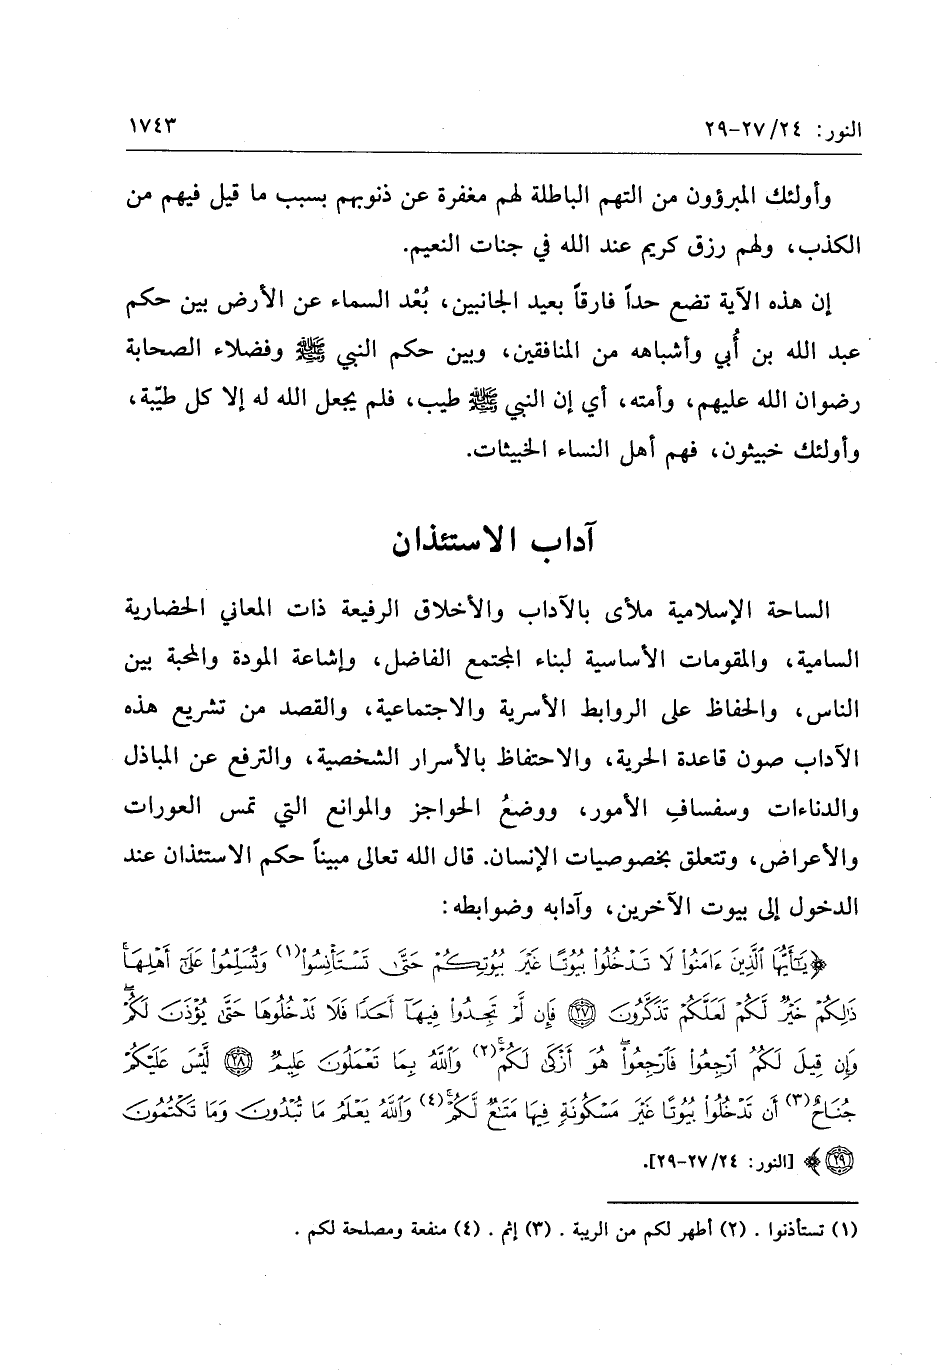 النور: ٢٤/ ٢٧-٢٩ ١٧٤٣
وأولئك المبرؤون من التهم الباطلة لهم مغفرة عن ذنوبهم بسبب ما قيل فيهم من
الكذب، ولهم رزق كريم عند الله في جنات النعيم.
إن هذه الآية تضع حداً فارقاً بعيد الجانبين، بُعْد السماء عن الأرض بين حكم
عبد الله بن أُبي وأشباهه من المنافقين، وبين حكم النبي ﷺ وفضلاء الصحابة
رضوان الله عليهم، وأمته، أي إن النبي ﷺ طيب، فلم يجعل الله له إلا كل طيّبة،
وأولئك خبيثون، فهم أهل النساء الخبيثات.
آداب الاستئذان
الساحة الإسلامية ملأى بالآداب والأخلاق الرفيعة ذات المعاني الحضارية
السامية، والمقومات الأساسية لبناء المجتمع الفاضل، وإشاعة المودة والمحبة بين
الناس، والحفاظ على الروابط الأسرية والاجتماعية، والقصد من تشريع هذه
الآداب صون قاعدة الحرية، والاحتفاظ بالأسرار الشخصية، والترفع عن المباذل
والدناءات وسفسافِ الأمور، ووضعُ الحواجز والموانع التي تمس العورات
والأعراض، وتتعلق بخصوصيات الإنسان. قال الله تعالى مبيناً حكم الاستئذان عند
الدخول إلى بيوت الآخرين، وآدابه وضوابطه:
﴿يَٰٓأَيُّهَا ٱلَّذِينَ ءَامَنُوا۟ لَا تَدْخُلُوا۟ بُيُوتًا غَيْرَ بُيُوتِكُمْ حَتَّىٰ تَسْتَأْنِسُوا۟(١) وَتُسَلِّمُوا۟ عَلَىٰٓ أَهْلِهَا ۚ
ذَٰلِكُمْ خَيْرٌ لَّكُمْ لَعَلَّكُمْ تَذَكَّرُونَ ٢٧ فَإِن لَّمْ تَجِدُوا۟ فِيهَآ أَحَدًا فَلَا تَدْخُلُوهَا حَتَّىٰ يُؤْذَنَ لَكُمْ ۖ
وَإِن قِيلَ لَكُمُ ٱرْجِعُوا۟ فَٱرْجِعُوا۟ ۖ هُوَ أَزْكَىٰ لَكُمْ ۚ(٢) وَٱللَّهُ بِمَا تَعْمَلُونَ عَلِيمٌ ٢٨ لَّيْسَ عَلَيْكُمْ
جُنَاحٌ(٣) أَن تَدْخُلُوا۟ بُيُوتًا غَيْرَ مَسْكُونَةٍ فِيهَا مَتَٰعٌ لَّكُمْ ۚ(٤) وَٱللَّهُ يَعْلَمُ مَا تُبْدُونَ وَمَا تَكْتُمُونَ
٢٩﴾ [النور: ٢٤/ ٢٧-٢٩].
(١) تستأذنوا . (٢) أطهر لكم من الريبة . (٣) إثم . (٤) منفعة ومصلحة لكم .